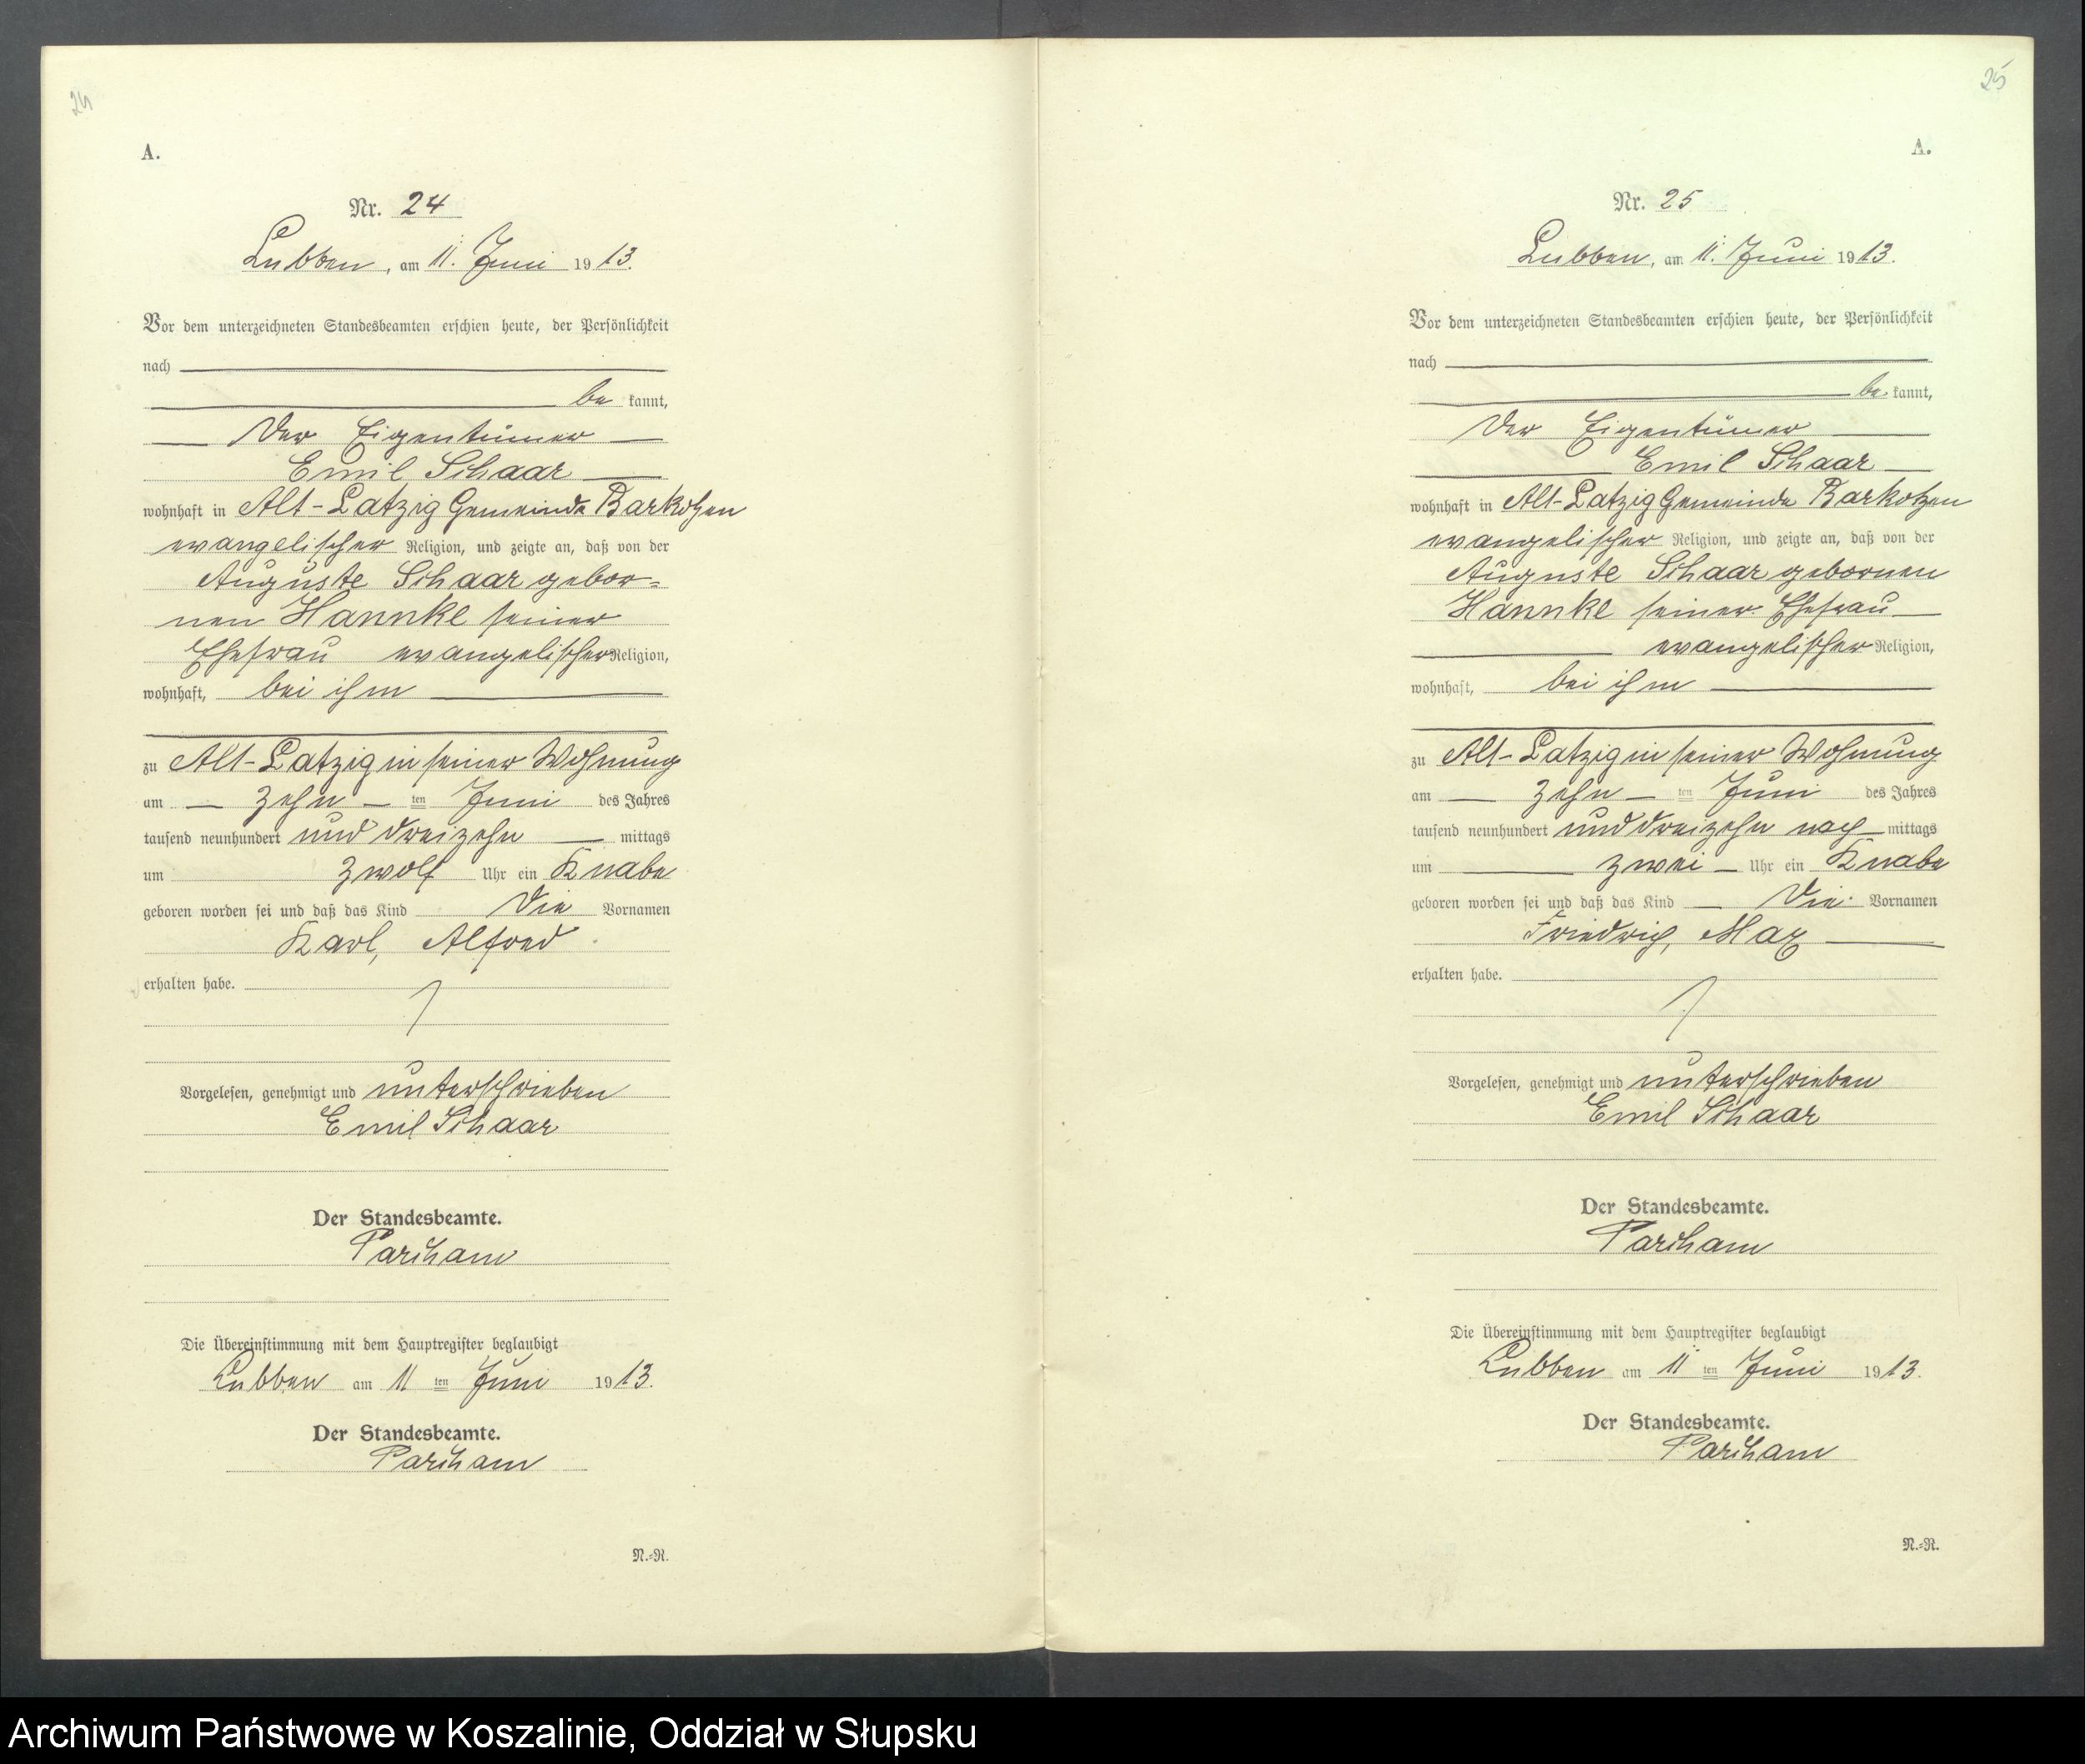 24
A.
Nr. 24
Lubben, am 11. Juni 1913.
Vor dem unterzeichneten Standesbeamten erschien heute, der Persönlichkeit
nach
be kannt,
der Eigentümer
Emil Schaar
wohnhaft in Alt-Latzig Gemeinde Barkotzen
evangelischer Religion, und zeigte an, daß von der
Auguste Schaar gebor-
nen Hannke seiner
Ehefrau evangelischer Religion,
wohnhaft, bei ihm
zu Alt-Latzig in seiner Wohnung
am zehn ten Juni des Jahres
tausend neunhundert und dreizehn mittags
um zwölf Uhr ein Knabe
geboren worden sei und daß das Kind die Vornamen
Karl, Alfred
erhalten habe.
Vorgelesen, genehmigt und unterschrieben
Emil Schaar
Der Standesbeamte.
Parcham
Die Übereinstimmung mit dem Hauptregister beglaubigt
Lubben am 11 ten Juni 1913.
Der Standesbeamte.
Parcham
N.=R.
25
A.
Nr. 25
Lubben, am 11. Juni 1913.
Vor dem unterzeichneten Standesbeamten erschien heute, der Persönlichkeit
nach
be kannt,
der Eigentümer
Emil Schaar
wohnhaft in Alt-Latzig Gemeinde Barkotzen
evangelischer Religion, und zeigte an, daß von der
Auguste Schaar gebornen
Hannke seiner Ehefrau
evangelischer Religion,
wohnhaft, bei ihm
zu Alt-Latzig in seiner Wohnung
am zehn ten Juni des Jahres
tausend neunhundert und dreizehn nach mittags
um zwei Uhr ein Knabe
geboren worden sei und daß das Kind die Vornamen
Friedrich, Max
erhalten habe.
Vorgelesen, genehmigt und unterschrieben
Emil Schaar
Der Standesbeamte.
Parcham
Die Übereinstimmung mit dem Hauptregister beglaubigt
Lubben am 11 ten Juni 1913.
Der Standesbeamte.
Parcham
N.=R.
Archiwum Państwowe w Koszalinie, Oddział w Słupsku